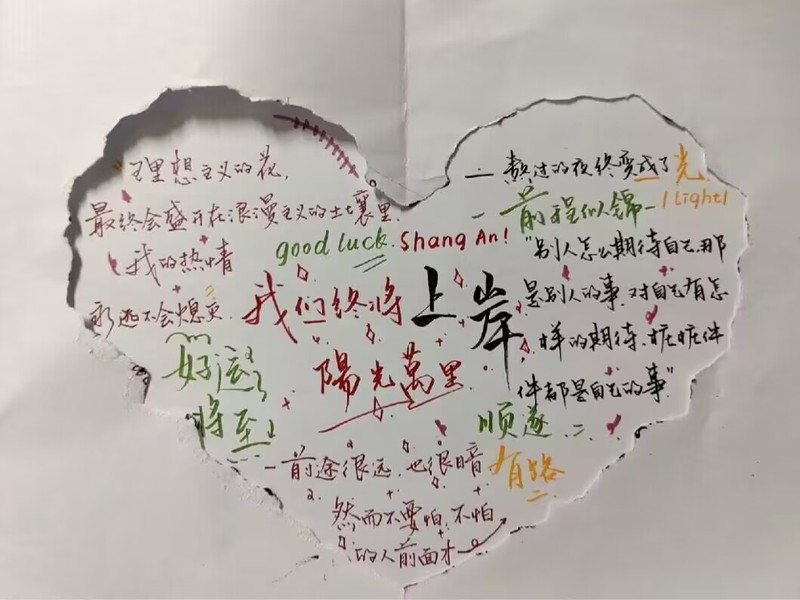 理想主义的花，
最终会盛开在浪漫主义的土壤里.
我的热情
永远不会熄灭.
good luck. Shang An!
我们终将上岸
陽光萬里
好运
将至
一 熬过的夜终变成了光
(Light)
- 前程似锦 -
"别人怎么期待自己.那
是别人的事.对自己有怎
样的期待.桩桩件
件都是自己的事"
顺遂
-前途很远.也很暗
然而不要怕.不怕
的人前面才
有路